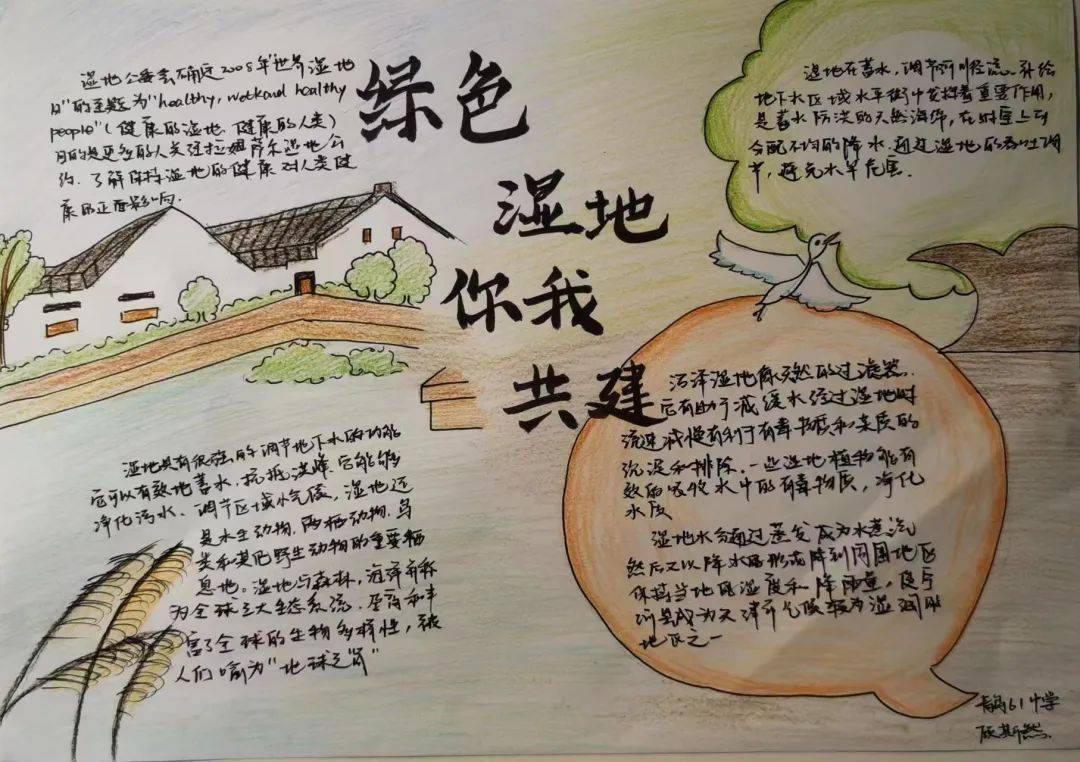 绿色
湿地
你我
共建
湿地公委会确定2008年"世界湿地
日"的主题为"healthy, wetkand healthy
people"(健康的湿地、健康的人类)
目的是更多的人关注拉姆萨尔湿地公
约.了解保持湿地的健康对人类健
康的正面影响.
湿地在蓄水,调节河川径流、补给
地下水区域水平衡中发挥着重要作用,
是蓄水防洪的天然海绵,在时空上可
分配不均的降水.通过湿地的吞吐调
节,避免水旱危害.
湿地具有很强的调节地下水的功能
它可以有效地蓄水.抗抵洪峰.它能够
净化污水、调节区域小气候,湿地还
是水生动物.两栖动物.鸟
类和其它野生动物的重要栖
息地。湿地与森林,海洋并称
为全球三大生态系统.孕育和丰
富了全球的生物多样性,被
人们喻为"地球之肾"
沼泽湿地像天然的过滤器.
它有助于减缓水经过湿地时
流速减慢有利于有毒物质和杂质的
沉淀和排除.一些湿地植物能有
效的吸收水中的有毒物质,净化
水质
湿地水分通过蒸发成为水蒸汽
然后又以降水的形式降到周围地区
保持当地的湿度和降雨量,
成为天津市气候较为湿润的
地区之一
青岛61中学
斯然